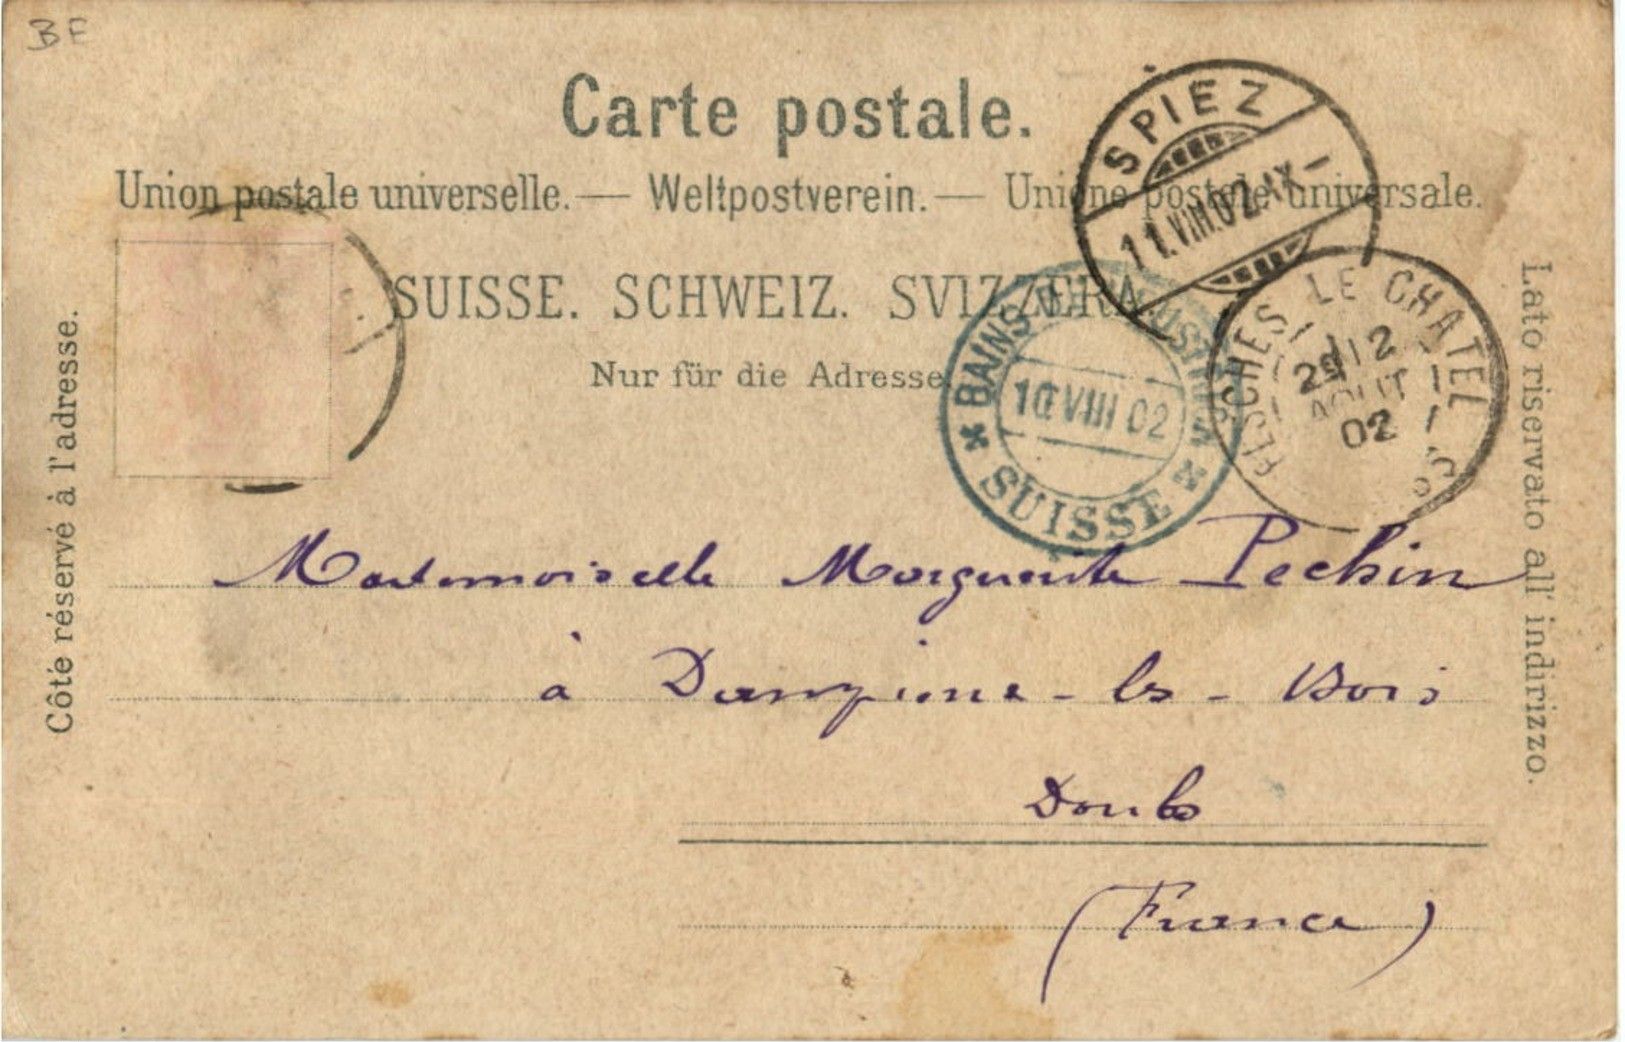 BF
Carte postale.
Union postale universelle. — Weltpostverein. — Unione postale universale.
SUISSE. SCHWEIZ. SVIZZERA.
Nur für die Adresse
Côté réservé à l'adresse.
Lato riservato all' indirizzo.
SPIEZ
11.VIII.02.IX–
BAINS
10 VIII 02
SUISSE
LE CHATEL
12
AOUT
02
Mademoiselle Marguerite Pechin
à Dampierre-les-Bois
Doubs
(France)